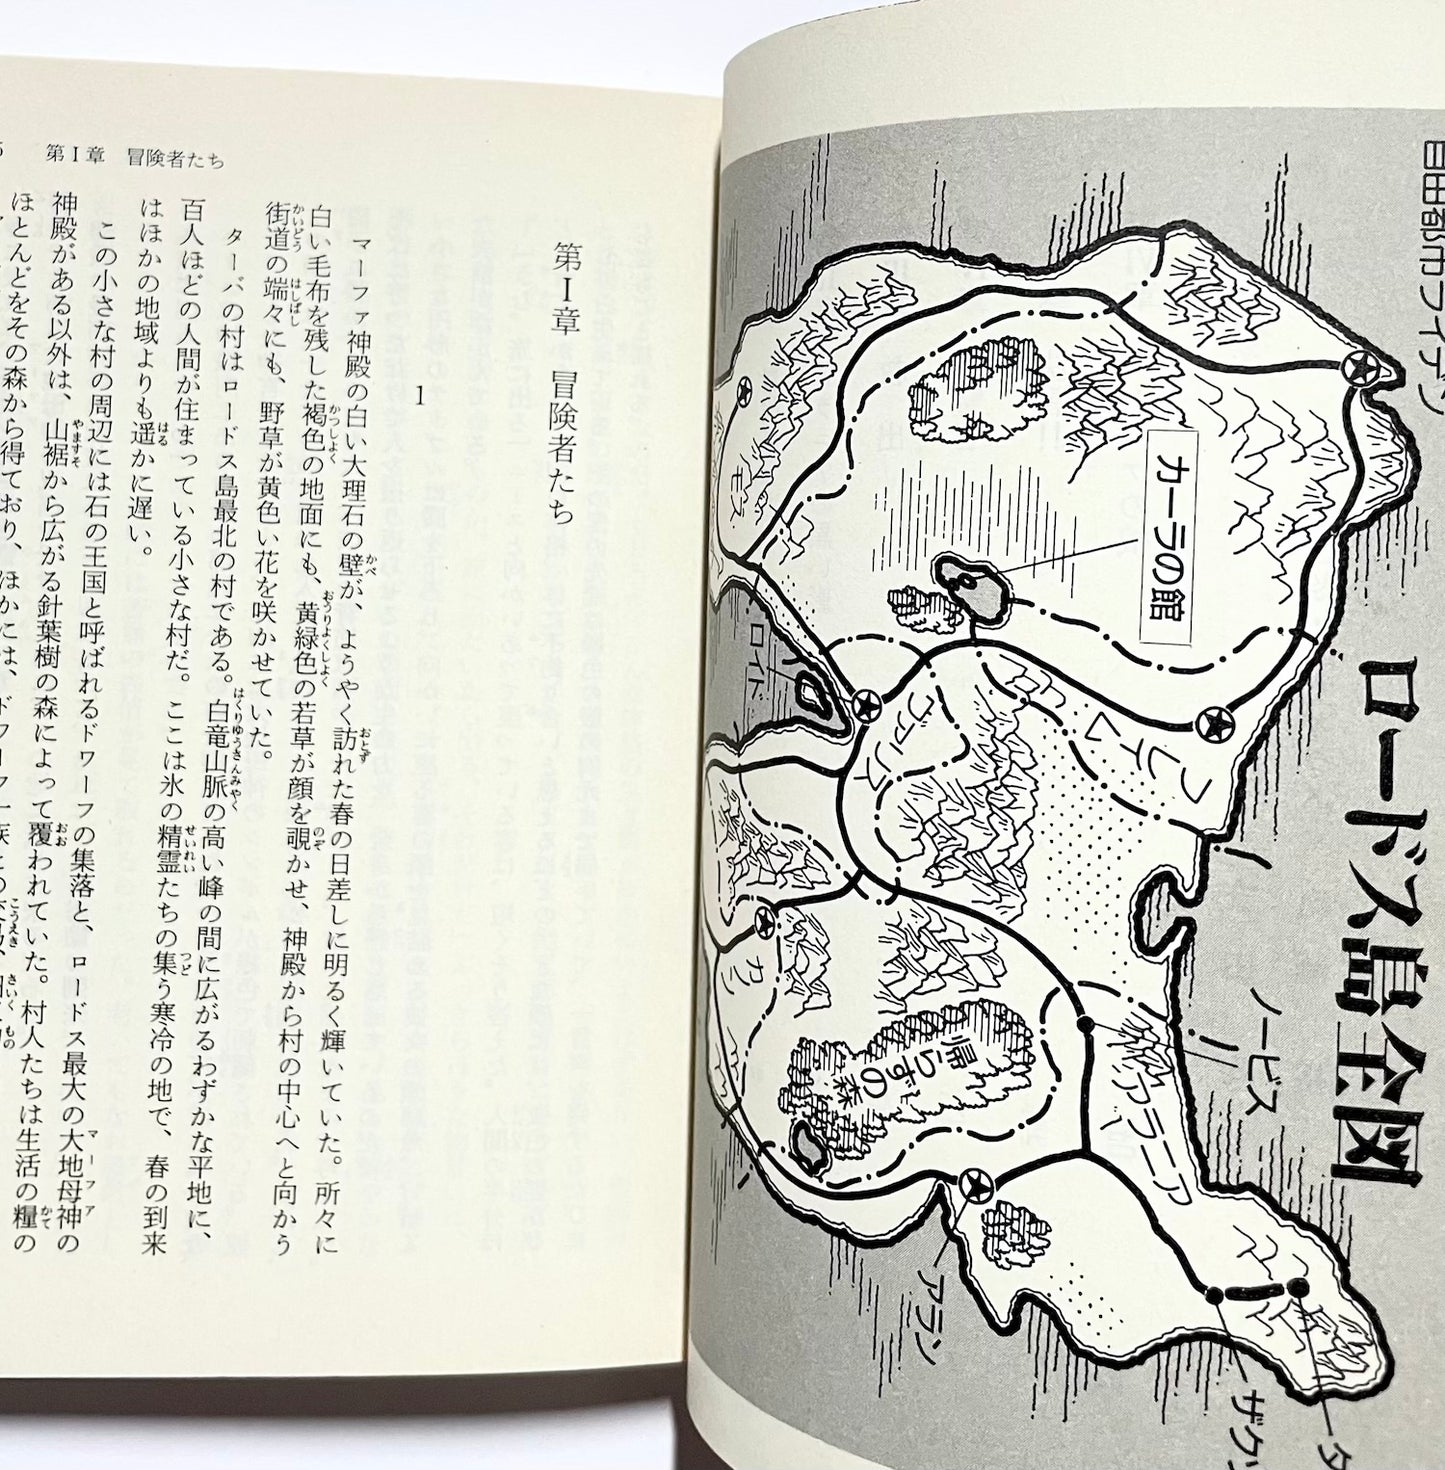 第Ⅰ章　冒険者たち
第Ⅰ章　冒険者たち
1
マーファ神殿の白い大理石の壁が、ようやく訪れた春の日差しに明るく輝いていた。所々に
白い毛布を残した褐色の地面にも、黄緑色の若草が顔を覗かせ、神殿から村の中心へと向かう
街道の端々にも、野草が黄色い花を咲かせていた。
ターバの村はロードス島最北の村である。白竜山脈の高い峰の間に広がるわずかな平地に、
百人ほどの人間が住まっている小さな村だ。ここは氷の精霊たちの集う寒冷の地で、春の到来
はほかの地域よりも遥かに遅い。
この小さな村の周辺には石の王国と呼ばれるドワーフの集落と、ロードス最大の大地母神の
神殿がある以外は、山裾から広がる針葉樹の森によって覆われていた。村人たちは生活の糧の
ほとんどをその森から得ており、ほかには、ドワーフ一族との
ロードス島全図
自由都市ライデン
カーラの館
モス
ロイド
ヴァリス
フレイム
カノン
帰らずの森
ノービス
アラニア
アラン
ザクソ
タ